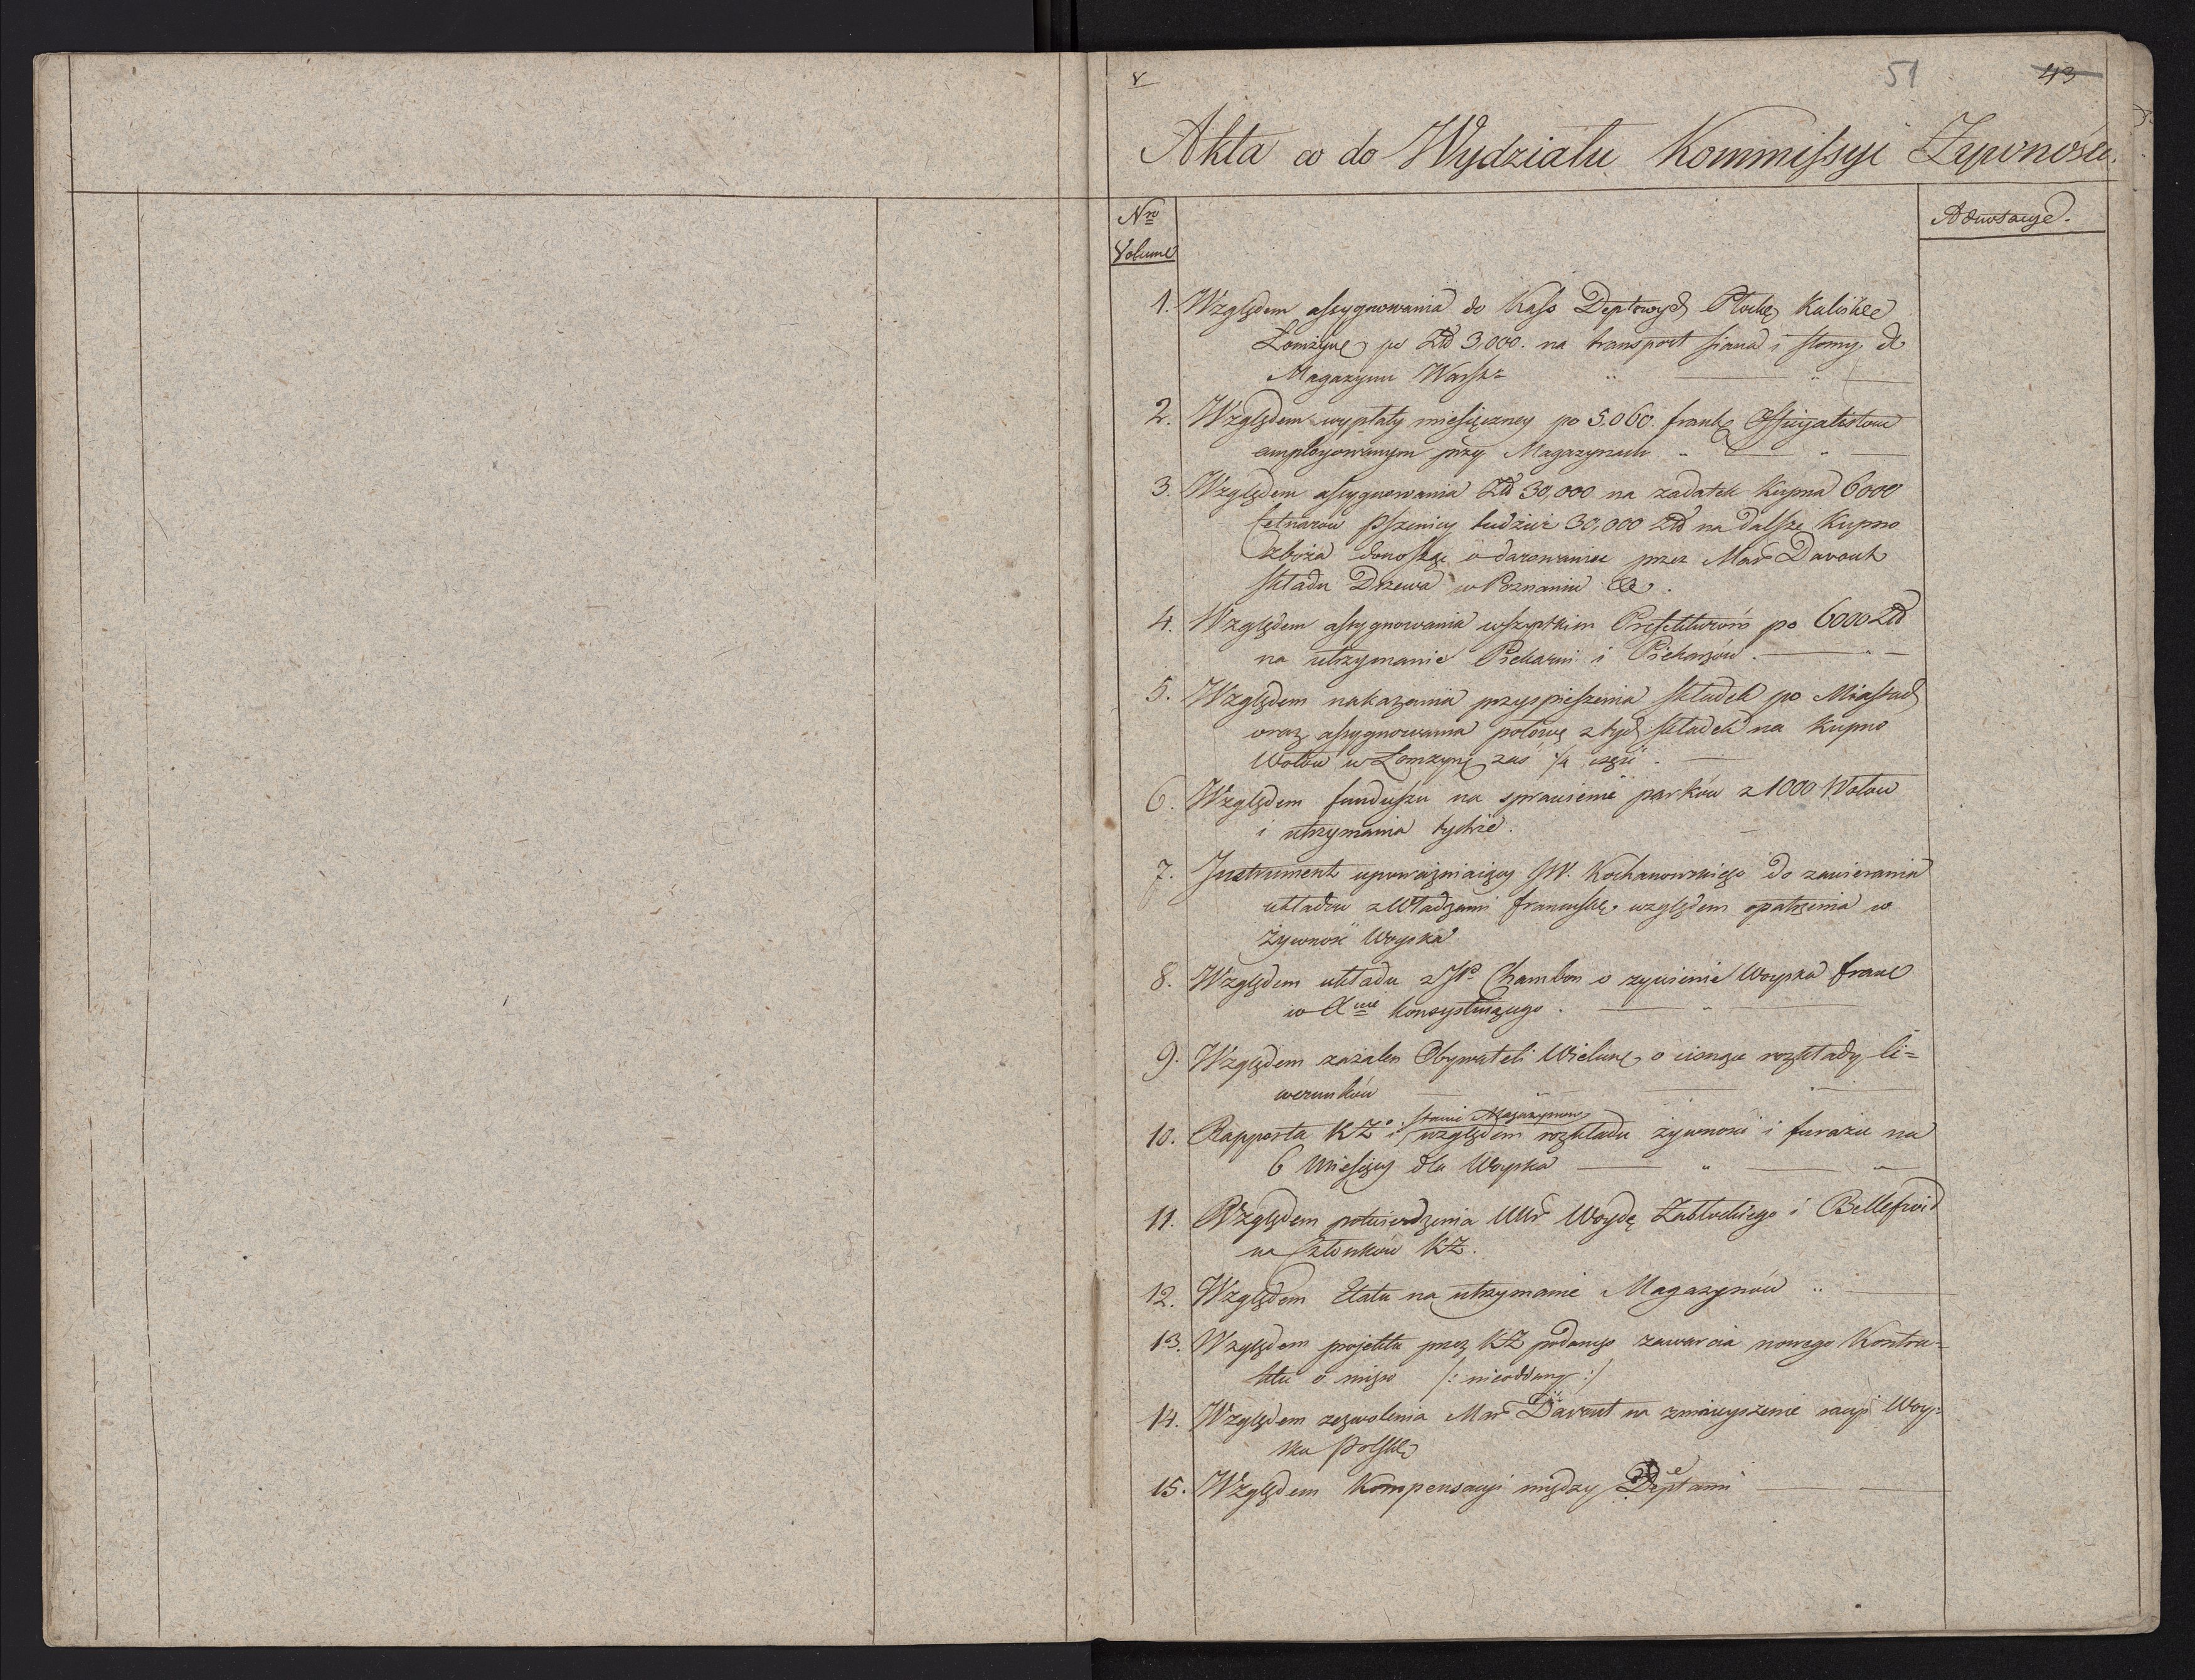 51 43
Akta co do Wydziału Kommissyi Żywności.
Nro
Volume
Adnotacye.
1. Względem assygnowania do Kass Deptowych Płockiey Kaliskiey
Łomżyńs. po Złd 3,000. na transport siana i słomy do
Magazynu Warsz=
2. Względem wypłaty miesięczney po 5.060. frank. Officyalistow
employowanym przy Magazynach
3. Względem assygnowania Złd 30,000 na zadatek kupna 6000
Cetnarow Pszenicy tudzież 30,000 Złd na dalsze kupno
zboża donosząc o darowaniu przez Mar Davout
składu Drzewa w Poznaniu &c.
4. Względem assygnowania wszystkim Prefekturom po 6000 Złd
na utrzymanie Piekarni i Piekarzów.
5. Względem nakazania przyspieszenia składek po Miastach
oraz assygnowania połowę z tych składek na kupno
Wołów w Łomżyns. zaś 1/4 część.
6. Względem funduszu na sprawienie parków z 1000 Wołow
i utrzymania tychże.
7. Instrument upoważniaiący JW. Kochanowskiego do zawierania
układow z Władzami francuskie. względem opatrzenia w
żywność Woyska
8. Względem układu z JP. Chambon o żywienie Woyska franc
w konsystuiącego.
9. Względem zażaleń Obywateli Wieluns. o ciensze rozkłady li=
werunków
10. Rapporta KŻ o stanie Magazynow i względem rozkładu żywności i furażu na
6 Miesięcy dla Woyska
11. Względem potwierdzenia WWr Woydę Zabłockiego i Bellefroid
na Członków KŻ.
12. Względem Etatu na utrzymanie Magazynów
13. Względem projektu przez KŻ podanego zawarcia nowego Kontra=
ktu o mięso /: nieoddany :/
14. Względem zezwolenia Mar Davout na zmnieyszenie racyi Woy=
ska Polskie.
15. Względem Kompensacyi między Deptami